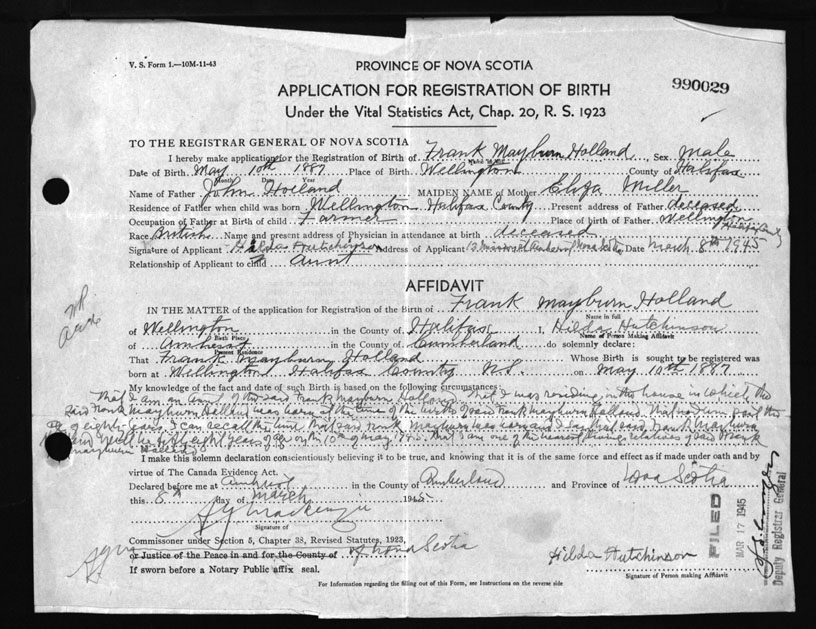 V. S. Form 1.—10M-11-43
PROVINCE OF NOVA SCOTIA
990029
APPLICATION FOR REGISTRATION OF BIRTH
Under the Vital Statistics Act, Chap. 20, R. S. 1923
TO THE REGISTRAR GENERAL OF NOVA SCOTIA
I hereby make application for the Registration of Birth of Frank Mayburn Holland Sex male
Name in full
Date of Birth May 10th 1887 Place of Birth Wellington County of Halifax
Month Date Year
Name of Father John Holland MAIDEN NAME of Mother Eliza Miller
Residence of Father when child was born Wellington Halifax County Present address of Father deceased
Occupation of Father at Birth of child Farmer Place of birth of Father Wellington
Race British Name and present address of Physician in attendance at birth deceased
Signature of Applicant Hilda Hutchinson Address of Applicant Amherst Nova Scotia Date March 8th 1945
Relationship of Applicant to child Aunt
AFFIDAVIT
IN THE MATTER of the application for Registration of the Birth of Frank Mayburn Holland
Name in full
of Wellington in the County of Halifax I, Hilda Hutchinson
Birth Place Name of Person Making Affidavit
of Amherst in the County of Cumberland do solemnly declare:
Present Residence
That Frank Mayburn Holland Whose Birth is sought to be registered was
born at Wellington Halifax County N.S. on May 10th 1887
My knowledge of the fact and date of such Birth is based on the following circumstances:
That I am an Aunt of the said Frank Mayburn Holland. That I was residing in the house in which the
said Frank Mayburn Holland was born at the time of the birth of said Frank Mayburn Holland. That
of eighty years. I can recall the time that said Frank Mayburn was born and
will be fifty eight years of age on the 10th of May 1945. That I am one of the nearest living relatives of said Frank
Mayburn Holland
I make this solemn declaration conscientiously believing it to be true, and knowing that it is of the same force and effect as if made under oath and by
virtue of The Canada Evidence Act.
Declared before me at Amherst in the County of Cumberland and Province of Nova Scotia
this 8th day of March 1945
Signature of
Commissioner under Section 5, Chapter 38, Revised Statutes, 1923,
or Justice of the Peace in and for the County of of Nova Scotia
If sworn before a Notary Public affix seal.
Hilda Hutchinson
Signature of Person making Affidavit
For Information regarding the filling out of this Form, see Instructions on the reverse side
FILED
MAR 17 1945
Deputy Registrar General